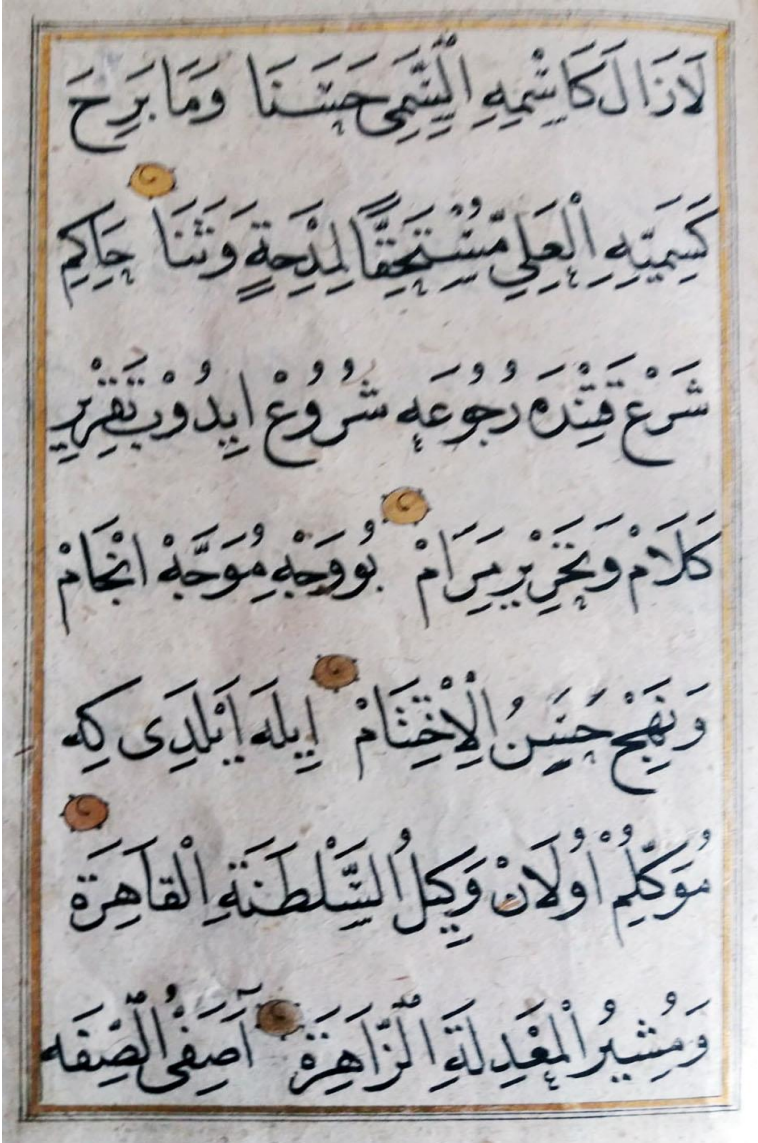 لَازَالَ كَاسْمِهِ السَّمِي حَسَنَا وَمَا بَرِحَ
كَسَمِيِّهِ الْعَلِيِّ مُسْتَحِقًّا لِمِدْحَةٍ وَثَنَا حَاكِمِ
شَرْعْ قَتِنْدَه رُجُوعَه شُرُوعْ اِيدُوبْ تَقْرِيرِ
كَلَامْ وَتَحْرِيرِ مَرَامْ بُو وَجْهِ مُوَجَّهْ انْجَامْ
وَنَهْجِ حَسَنُ الْاِخْتِتَامْ اِيلَه اَيْلَدِى كِه
مُوَكِّلُمْ اُولَانْ وَكِيلُ السَّلْطَنَةِ الْقَاهِرَة
وَمُشِيرُ الْمَعْدِلَةِ الزَّاهِرَة آصَفِىُّ الصِّفَه